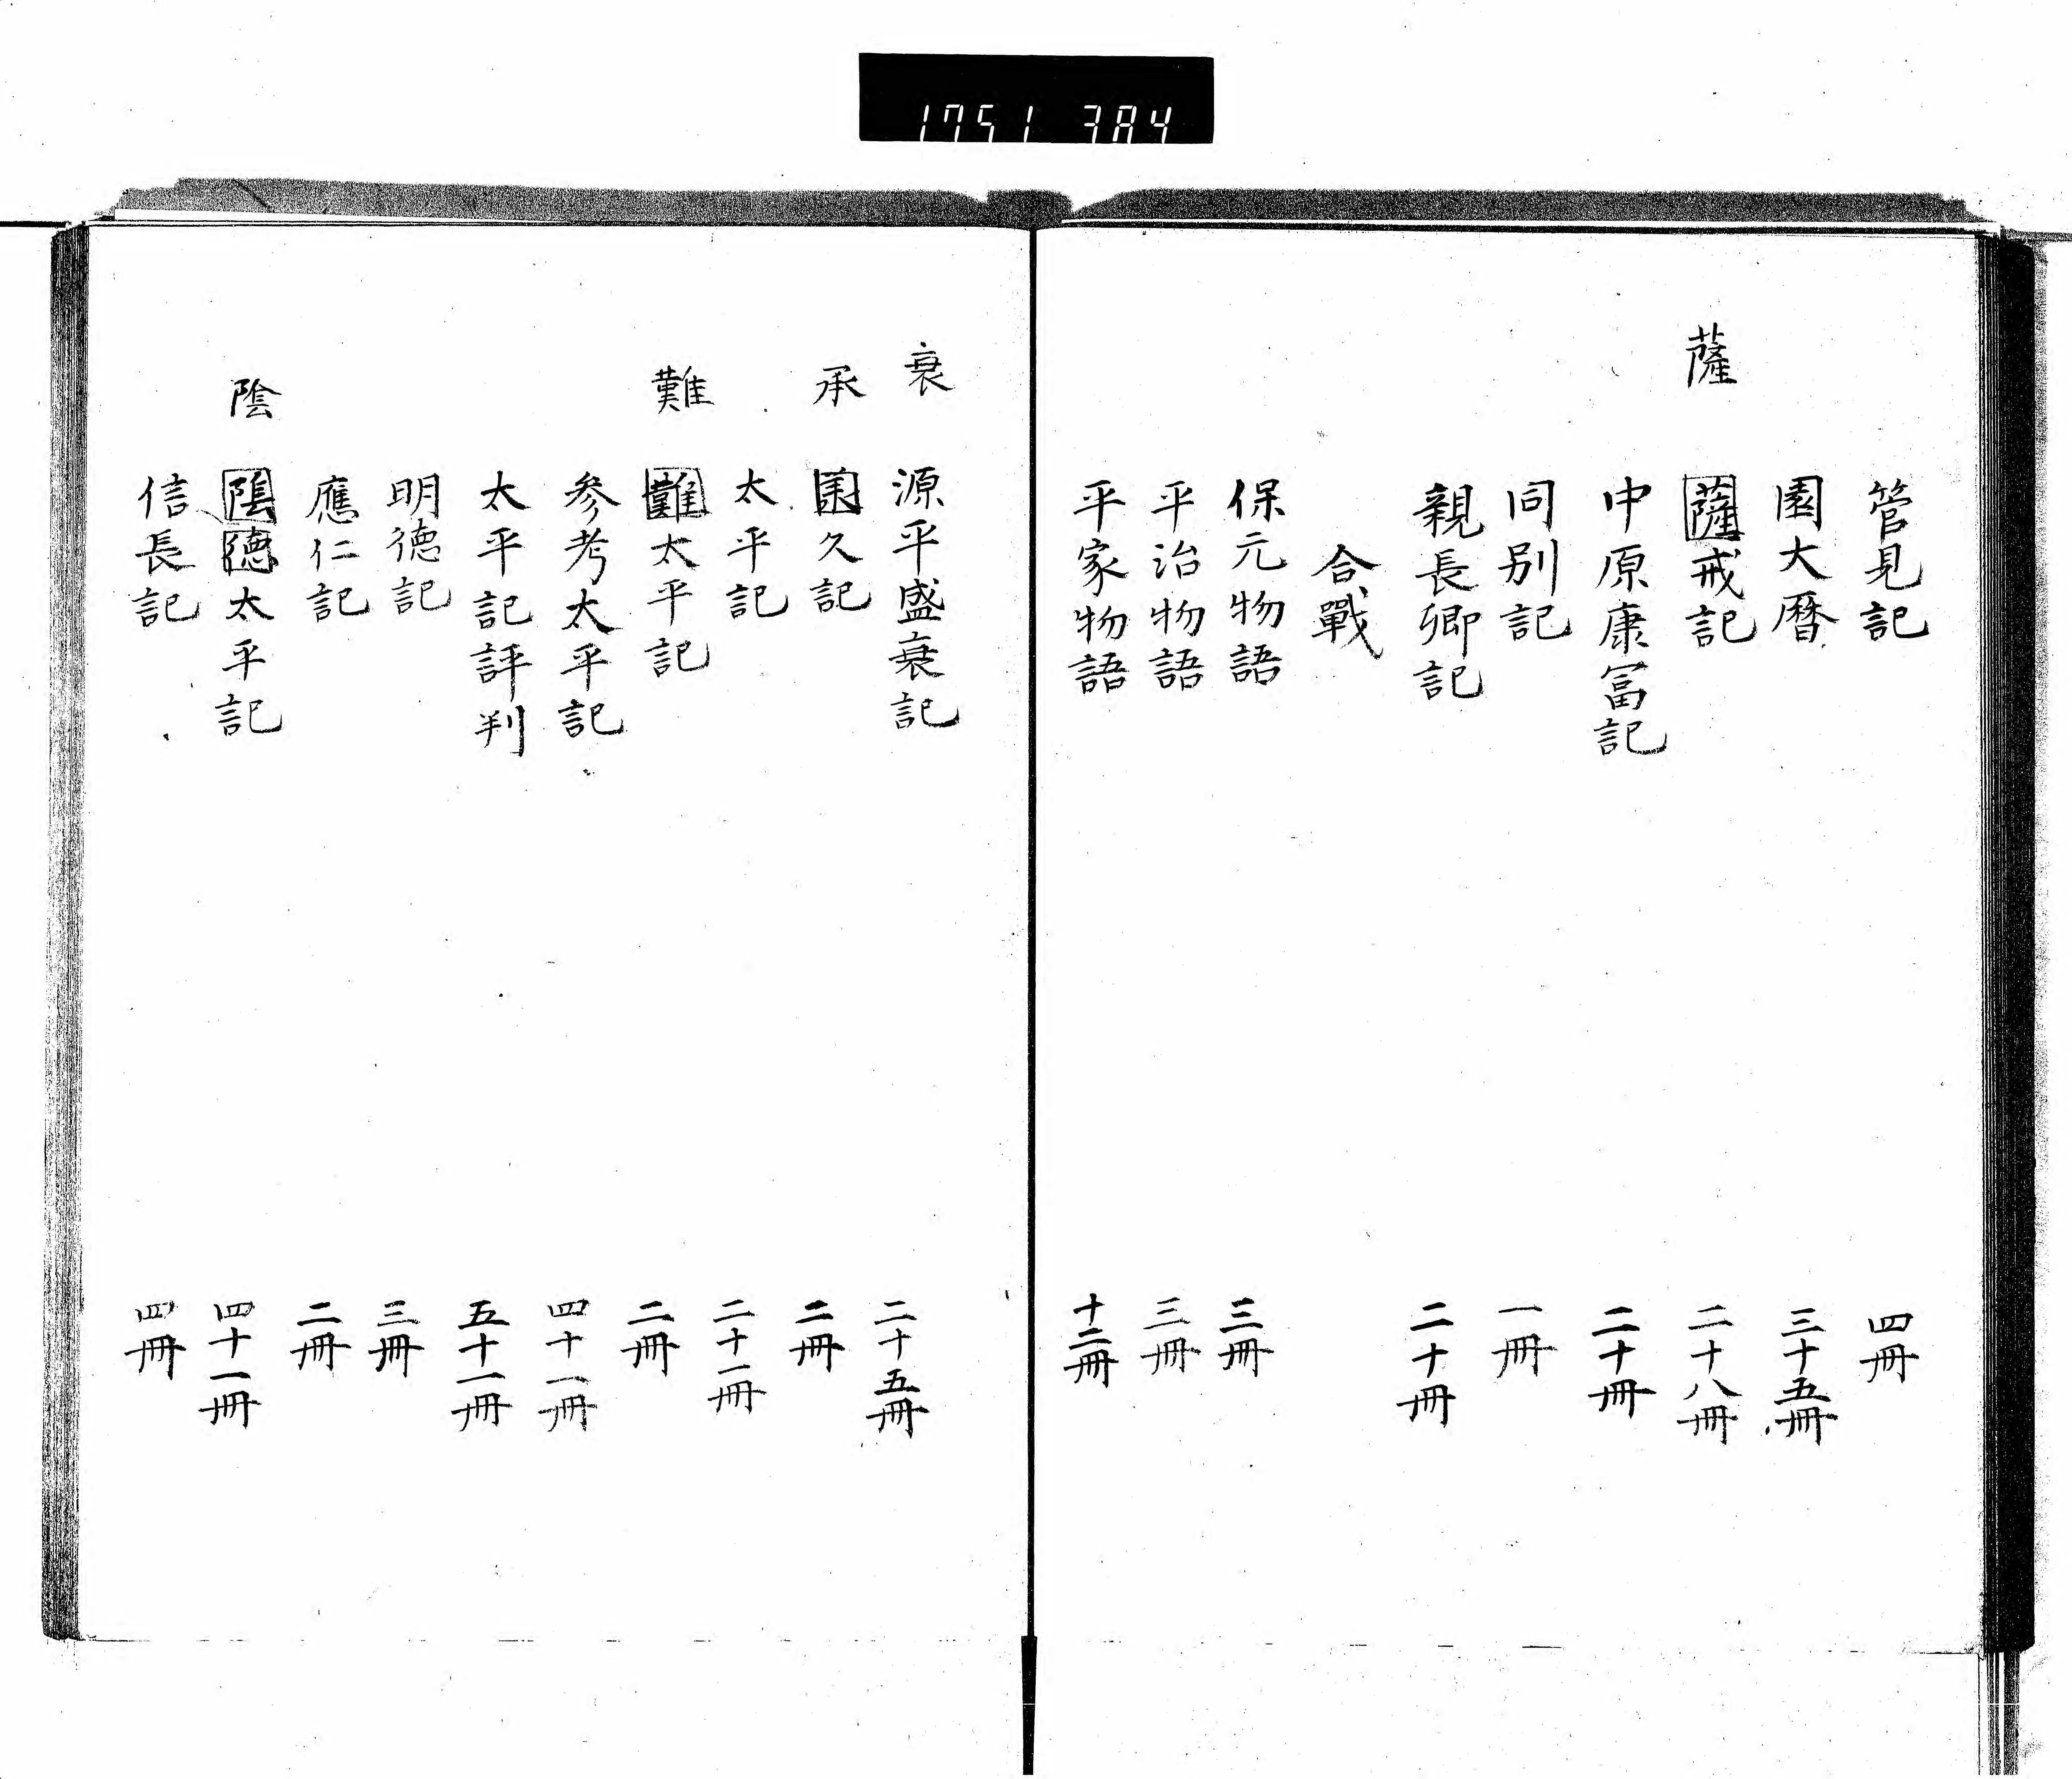 1751 384
管見記 四冊
園大曆 三十五冊
薩
薩戒記 二十八冊
中原康冨記 二十冊
同別記 一冊
親長卿記 二十冊
合戰
保元物語 三冊
平治物語 三冊
平家物語 十二冊
衰
源平盛衰記 二十五冊
承
久記 二冊
太平記 二十一冊
難
難太平記 二冊
参考太平記 四十一冊
太平記評判 五十一冊
明德記 三冊
應仁記 二冊
陰
陰德太平記 四十一冊
信長記 四冊